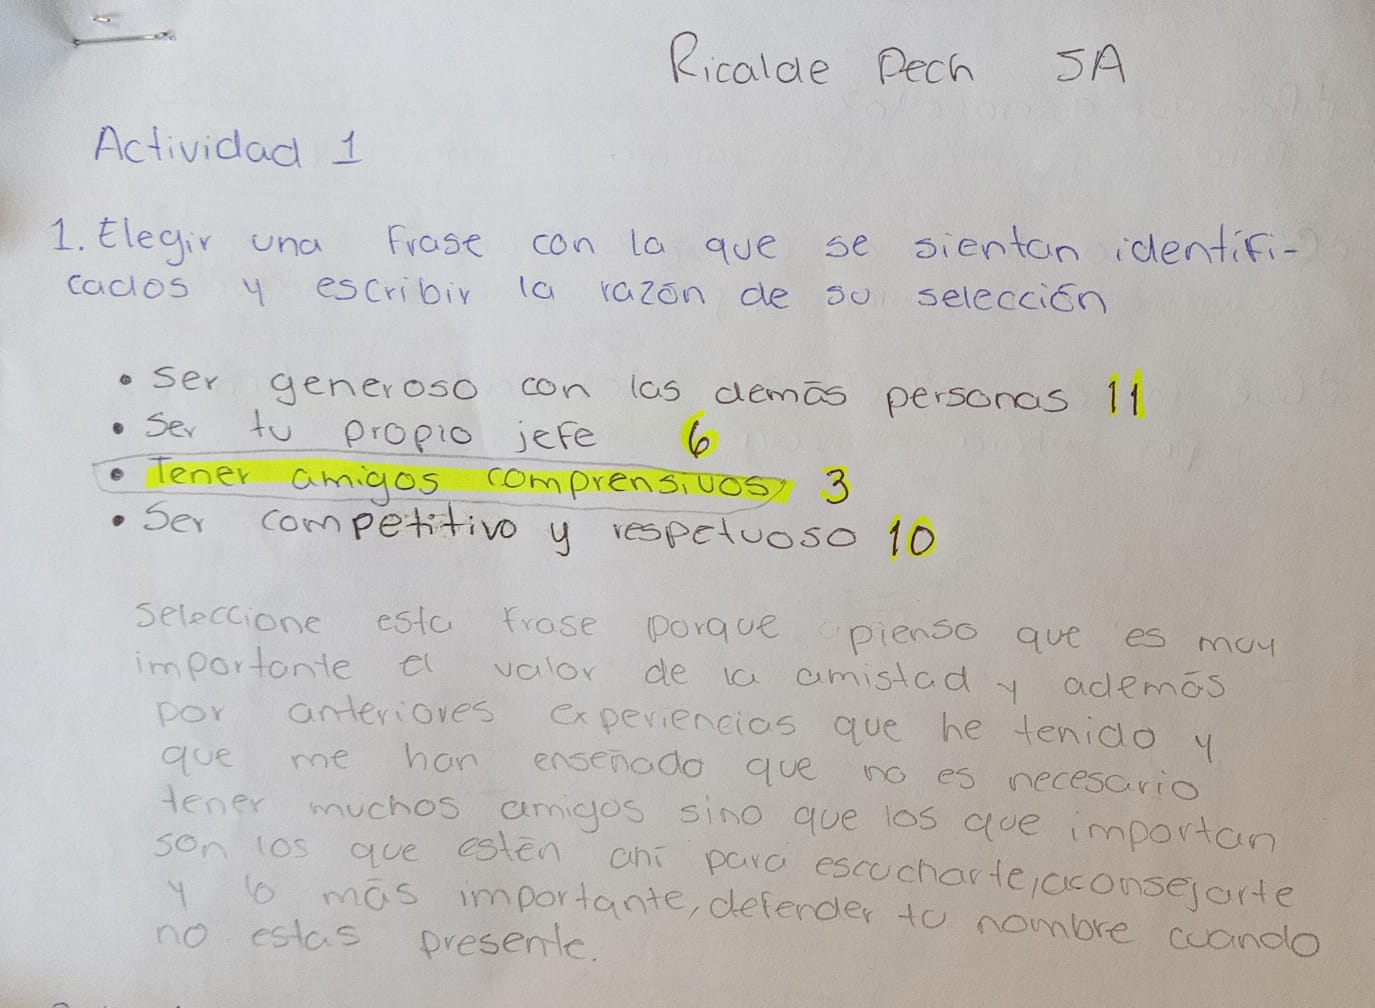 Ricalde Pech 5A
Actividad 1
1. Elegir una frase con la que se sientan identifi-
cados y escribir la razón de su selección
• Ser generoso con las demás personas 11
• Ser tu propio jefe 6
• Tener amigos comprensivos 3
• Ser competitivo y respetuoso 10
Seleccione esta frase porque pienso que es muy
importante el valor de la amistad y además
por anteriores experiencias que he tenido y
que me han enseñado que no es necesario
tener muchos amigos sino que los que importan
son los que estén ahí para escucharte, aconsejarte
y lo más importante, defender tu nombre cuando
no estas presente.